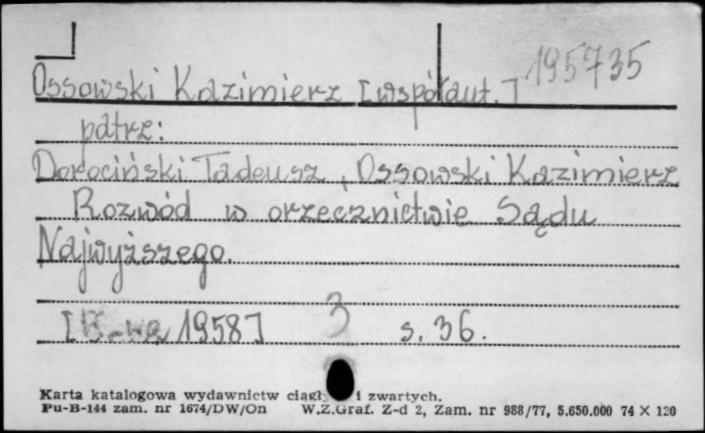 195735
Ossowski Kazimierz [współaut.]
patrz:
Dorociński Tadeusz, Ossowski Kazimierz
Rozwód w orzecznictwie Sądu
Najwyższego.
[W-wa 1958] 3 s. 36.
Karta katalogowa wydawnictw i zwartych.
Pu-B-144 zam. nr 1674/DW/On W.Z.Graf. Z-d 2, Zam. nr 988/77, 5.650.000 74 × 120